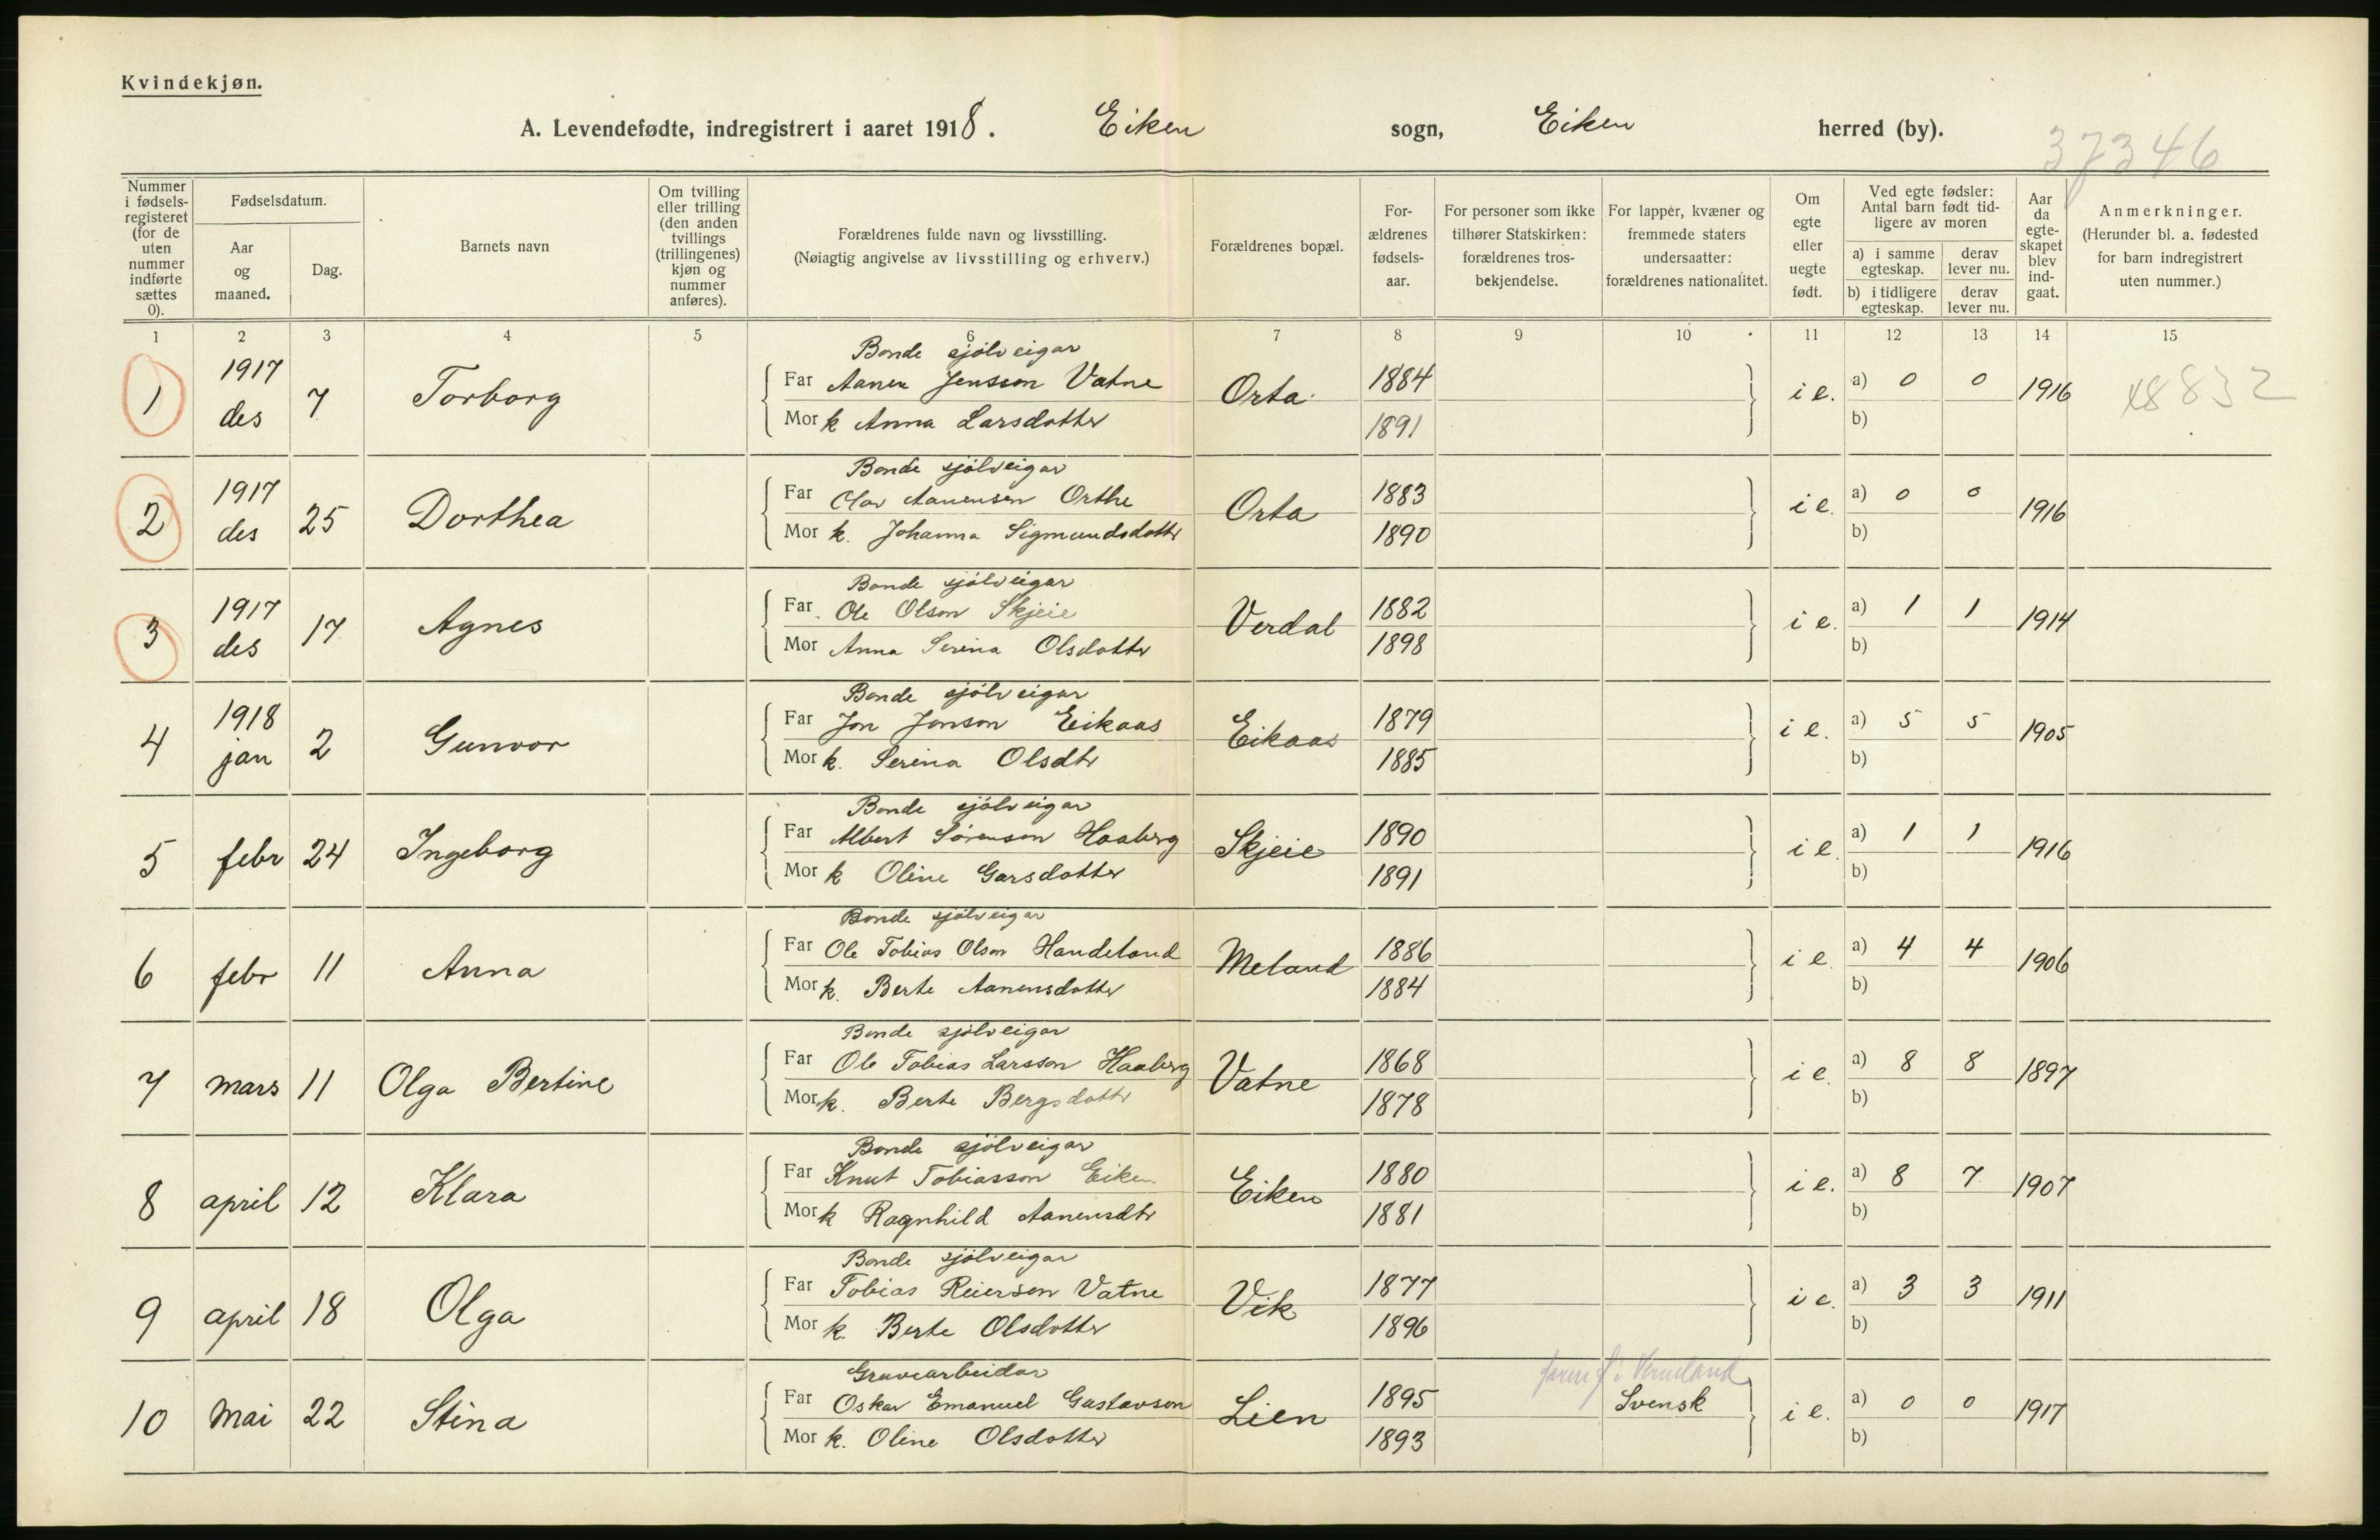 Kvindekjøn.
A. Levendefødte, indregistrert i aaret 1918. Eiken sogn, Eiken herred (by).
37346
Nummer i fødsels-registeret (for de uten nummer indførte sættes 0).
Fødselsdatum.
Aar og maaned.
Dag.
Barnets navn
Om tvilling eller trilling (den anden tvillings (trillingenes) kjøn og nummer anføres).
Forældrenes fulde navn og livsstilling.
(Nøiagtig angivelse av livsstilling og erhverv.)
Forældrenes bopæl.
For-ældrenes fødsels-aar.
For personer som ikke tilhører Statskirken: forældrenes tros-bekjendelse.
For lapper, kvæner og fremmede staters undersaatter: forældrenes nationalitet.
Om egte eller uegte født.
Ved egte fødsler: Antal barn født tid-ligere av moren
a) i samme egteskap.
derav lever nu.
b) i tidligere egteskap.
derav lever nu.
Aar da egte-skapet blev ind-gaat.
Anmerkninger.
(Herunder bl. a. fødested for barn indregistrert uten nummer.)
1 2 3 4 5 6 7 8 9 10 11 12 13 14 15
Bonde sjölveigar
1 1917 des 7 Torborg Far Aanen Jensson Vatne Orta 1884 i e. a) 0 0 1916 48832
Mor k Anna Larsdotter 1891 b)
Bonde sjölveigar
2 1917 des 25 Dorthea Far Olav Aanensen Orthe Orta 1883 i e. a) 0 0 1916
Mor k. Johanna Sigmundsdotter 1890 b)
Bonde sjölveigar
3 1917 des 17 Agnes Far Ole Olson Skjeie Verdal 1882 i e. a) 1 1 1914
Mor Anna Serina Olsdotter 1898 b)
Bonde sjölveigar
4 1918 jan 2 Gunvor Far Jon Jonson Eikaas Eikaas 1879 i e. a) 5 5 1905
Mor k. Serina Olsdtr 1885 b)
Bonde sjölveigar
5 febr 24 Ingeborg Far Albert Sörenson Haaberg Skjeie 1890 i e. a) 1 1 1916
Mor k Oline Garsdotter 1891 b)
Bonde sjölveigar
6 febr 11 Anna Far Ole Tobias Olson Handeland Meland 1886 i e. a) 4 4 1906
Mor k. Berte Aanensdotter 1884 b)
Bonde sjölveigar
7 mars 11 Olga Bertine Far Ole Tobias Larsson Haaberg Vatne 1868 i e. a) 8 8 1897
Mor k. Berte Bergsdotter 1878 b)
Bonde sjölveigar
8 april 12 Klara Far Knut Tobiasson Eiken Eiken 1880 i e. a) 8 7 1907
Mor k Ragnhild Aanensdtr 1881 b)
Bonde sjölveigar
9 april 18 Olga Far Tobias Reierson Vatne Vik 1877 i e. a) 3 3 1911
Mor k. Berte Olsdotter 1896 b)
Gruvearbeidar
10 mai 22 Stina Far Oskar Emanuel Gustavson Lien 1895 Svensk i e. a) 0 0 1917
Mor k. Oline Olsdotter 1893 b)